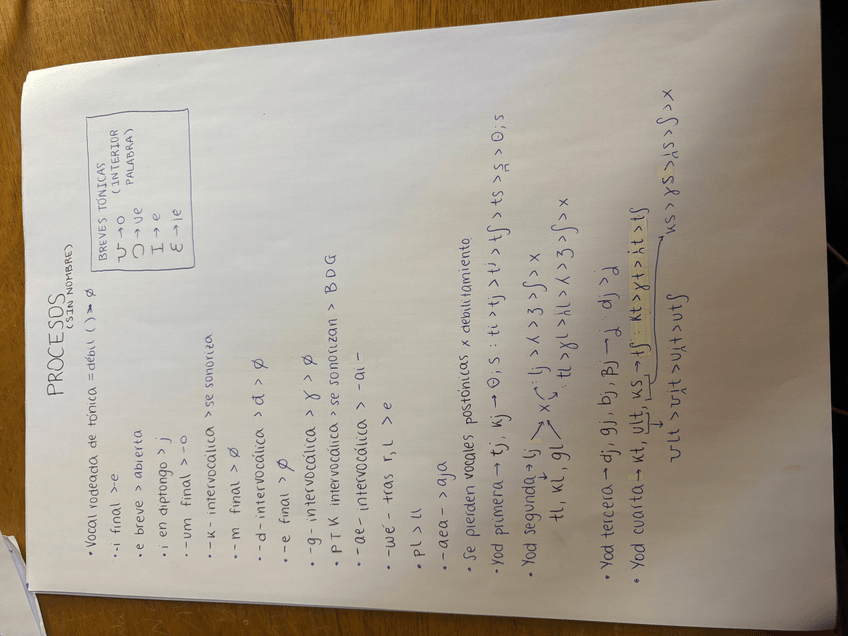 PROCESOS
(SIN NOMBRE)
• Vocal rodeada de tónica = débil ( ) > ø
BREVES TÓNICAS
ʊ → o (INTERIOR PALABRA)
ɔ → ue
I → e
ɛ → ie
• -i final > -e
• e breve > abierta
• i en diptongo > j
• -um final > -o
• -k- intervocálica > se sonoriza
• -m final > ø
• -d- intervocálica > d > ø
• -e final > ø
• -g- intervocálica > ɣ > ø
• PTK intervocálica > se sonorizan > BDG
• -ae- intervocálica > -ai-
• -we- tras r, l > e
• pl > ll
• -aea- > aja
• Se pierden vocales postónicas x debilitamiento
• Yod primera → tj, kj → θ; s : ti > tj > t' > tʃ > ts > s̯ > θ; s
• Yod segunda → lj → x : lj > ʎ > ʒ > ʃ > x
tl, kl, gl → x : tl > ɣl > i̯l > ʎ > ʒ > ʃ > x
• Yod tercera → dj, gj, bj, βj → j : dj > j
• Yod cuarta → kt, ult, ks → tʃ : kt > ɣt > i̯t > tʃ
ʊlt > ʊi̯t > ui̯t > utʃ
ks > ɣs > i̯s > ʃ > x